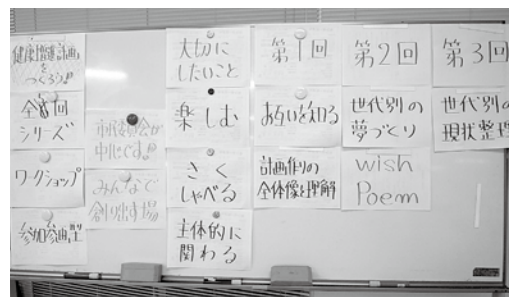 健康増進計画を
つくろう!!
全8回
シリーズ
ワークショップ
参加参画型
市民委員会が
中心です!!
みんなで
創り出す場
大切に
したいこと
楽しむ
きく
しゃべる
主体的に
関わる
第1回
お互いを知る
計画作りの
全体像を理解
第2回
世代別の
夢づくり
wish
Poem
第3回
世代別の
現状整理